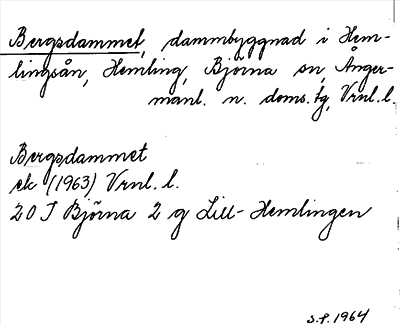 Bergsdammet, dammbyggnad i Hem-
lingsån, Hemling, Björna sn, Ånger-
manl. n. doms.tg, Vrnl.l.
Bergsdammet
ek (1963) Vrnl. l.
20 J Björna 2 g Lill-Hemlingen
S.F. 1964